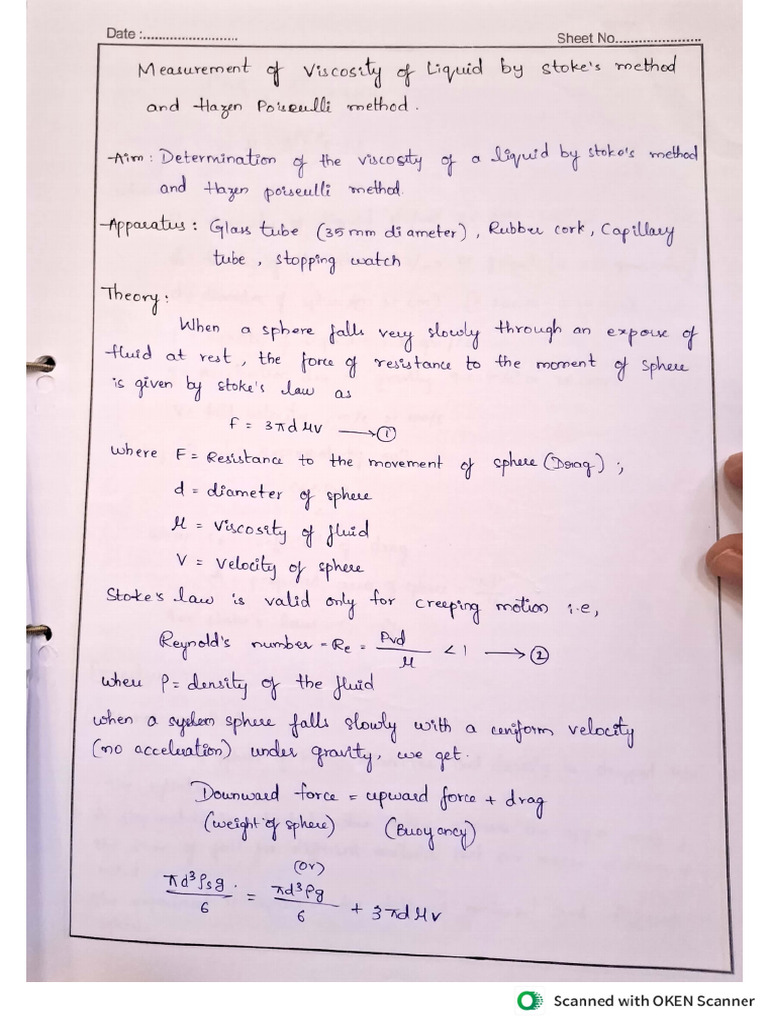 Date :..........................
Sheet No.......................
Measurement of Viscosity of Liquid by Stoke's method
and Hazen Poiseulli method.
Aim : Determination of the viscosity of a liquid by stoke's method
and Hazen poiseulli method.
Apparatus : Glass tube (35mm diameter), Rubber cork, Capillary
tube, stopping watch
Theory :
When a sphere falls very slowly through an expouse of
fluid at rest, the force of resistance to the moment of sphere
is given by stoke's law as
f = 3πdμv ⟶ ①
where F = Resistance to the movement of sphere (Drag) ;,
d = diameter of sphere
μ = Viscosity of fluid
V = Velocity of sphere
Stoke's law is valid only for creeping motion i.e,
Reynold's number = Re = ρvd/μ < 1 ⟶ ②
when ρ = density of the fluid
when a system sphere falls slowly with a uniform velocity
(no acceleration) under gravity, we get.
Downward force = upward force + drag
(weight of sphere) (Buoyancy)
(or)
πd³ρsg/6 = πd³ρg/6 + 3πdμv
Scanned with OKEN Scanner